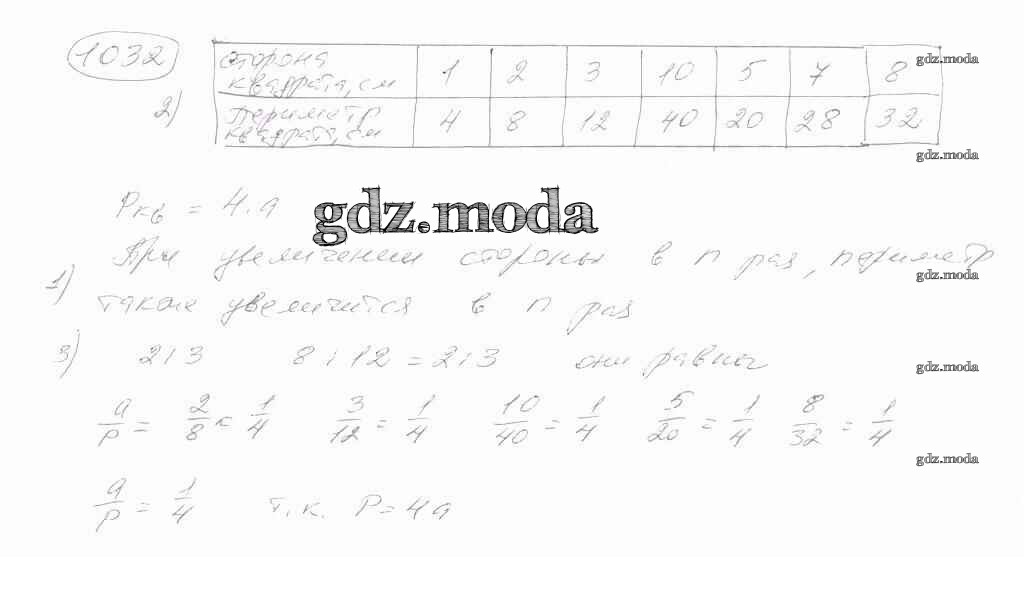 1032
сторона квадрата, см 1 2 3 10 5 7 8
gdz.moda
2)
периметр квадрата, см 4 8 12 40 20 28 32
gdz.moda
Pкв = 4·a
gdz.moda
При увеличении стороны в n раз, периметр
gdz.moda
1)
также увеличится в n раз
3) 2:3 8:12 = 2:3 они равны
gdz.moda
a/p = 2/8 = 1/4 3/12 = 1/4 10/40 = 1/4 5/20 = 1/4 8/32 = 1/4
gdz.moda
a/p = 1/4 т.к. P=4a